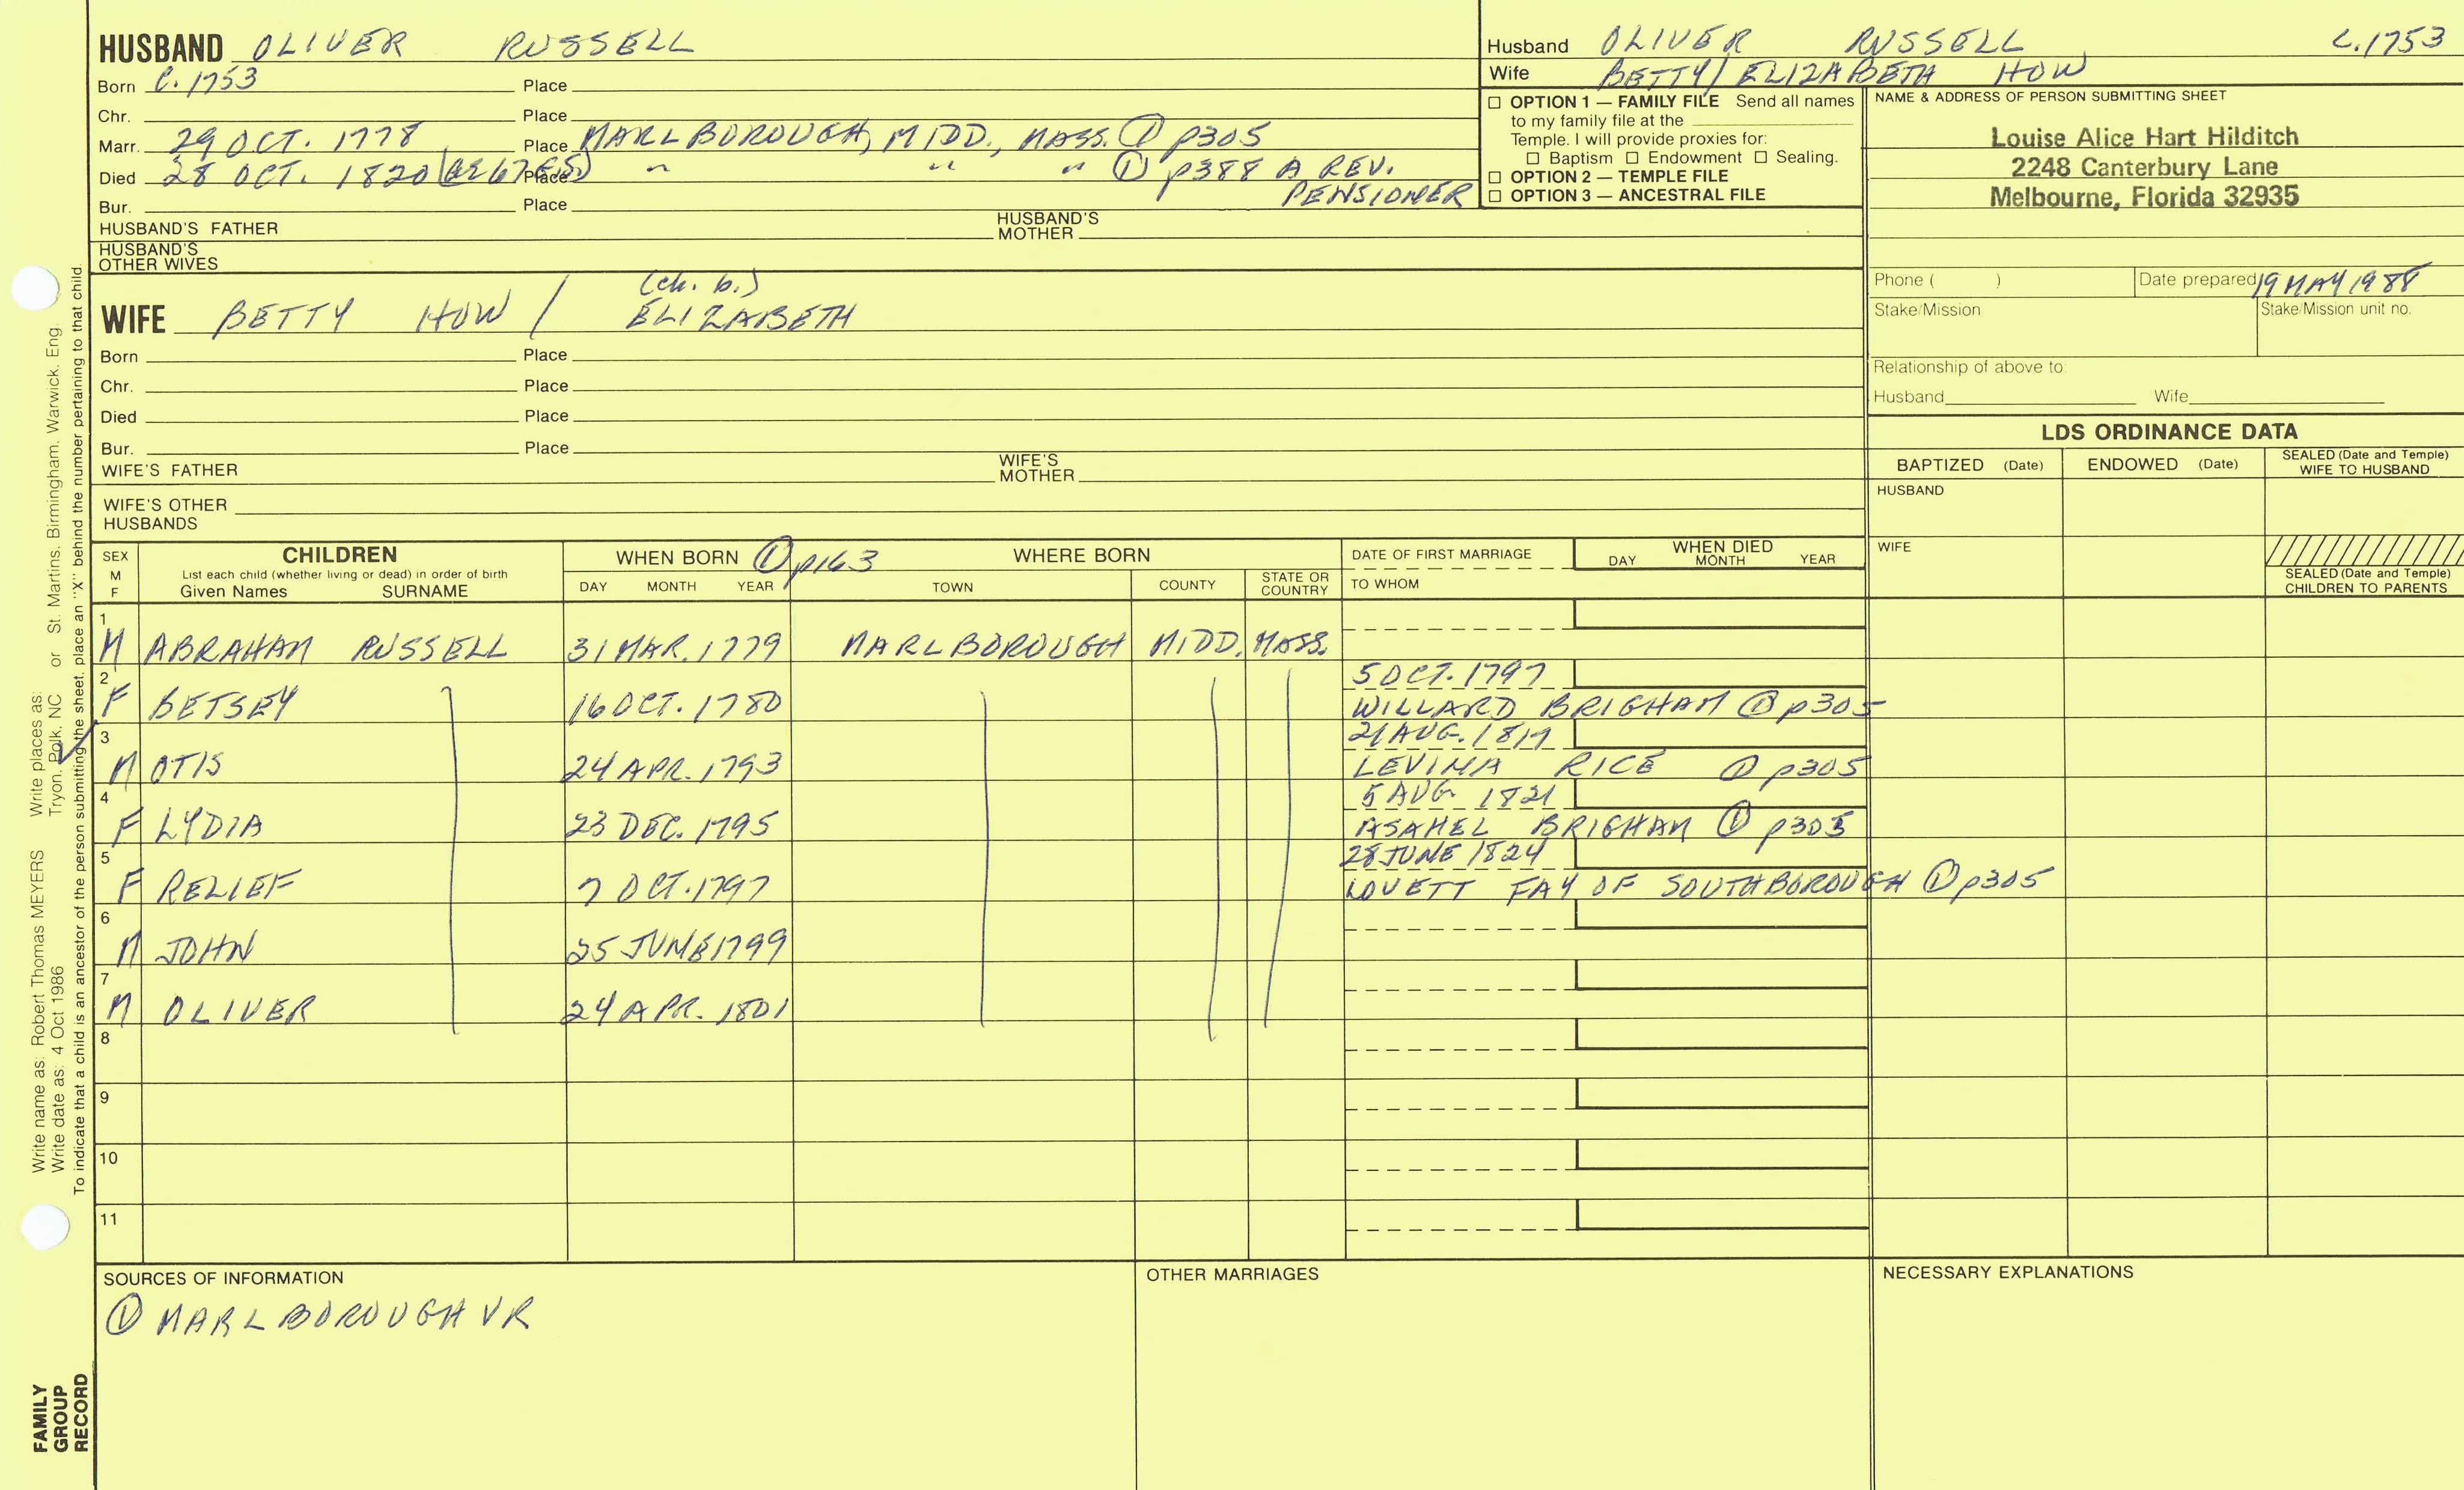 HUSBAND OLIVER RUSSELL
Born C. 1753 Place
Chr. Place
Marr. 29 OCT. 1778 Place MARLBOROUGH, MIDD., MASS. ① p305
Died 28 OCT. 1820 Place " " " ① p388 A REV.
PENSIONER
Bur. Place
HUSBAND'S FATHER HUSBAND'S MOTHER
HUSBAND'S OTHER WIVES
(ch. b.)
WIFE BETTY HOW / ELIZABETH
Born Place
Chr. Place
Died Place
Bur. Place
WIFE'S FATHER WIFE'S MOTHER
WIFE'S OTHER HUSBANDS
Husband OLIVER RUSSELL C. 1753
Wife BETTY / ELIZABETH HOW
☐ OPTION 1 — FAMILY FILE Send all names
to my family file at the
Temple. I will provide proxies for:
☐ Baptism ☐ Endowment ☐ Sealing.
☐ OPTION 2 — TEMPLE FILE
☐ OPTION 3 — ANCESTRAL FILE
NAME & ADDRESS OF PERSON SUBMITTING SHEET
Louise Alice Hart Hilditch
2248 Canterbury Lane
Melbourne, Florida 32935
Phone ( ) Date prepared 19 MAY 1988
Stake/Mission Stake/Mission unit no.
Relationship of above to:
Husband Wife
LDS ORDINANCE DATA
BAPTIZED (Date) ENDOWED (Date) SEALED (Date and Temple) WIFE TO HUSBAND
HUSBAND
WIFE
SEALED (Date and Temple) CHILDREN TO PARENTS
SEX M F
CHILDREN
List each child (whether living or dead) in order of birth
Given Names SURNAME
WHEN BORN ① p163 WHERE BORN
DAY MONTH YEAR TOWN COUNTY STATE OR COUNTRY
DATE OF FIRST MARRIAGE
TO WHOM
WHEN DIED
DAY MONTH YEAR
1
M ABRAHAM RUSSELL 31 MAR. 1779 MARLBOROUGH MIDD. MASS.
2 5 OCT. 1797
F BETSEY 16 OCT. 1780 WILLARD BRIGHAM ① p305
3 21 AUG. 1817
M OTIS 24 APR. 1793 LEVINA RICE ① p305
4 5 AUG 1821
F LYDIA 23 DEC. 1795 ASAHEL BRIGHAM ① p305
5 28 JUNE 1824
F RELIEF 7 OCT. 1797 LOVETT FAY OF SOUTHBOROUGH ① p305
6
M JOHN 25 JUNE 1799
7
M OLIVER 24 APR. 1801
8
9
10
11
SOURCES OF INFORMATION
① MARLBOROUGH VR
OTHER MARRIAGES
NECESSARY EXPLANATIONS
Write name as: Robert Thomas MEYERS Write places as:
Write date as: 4 Oct 1986 Tryon, Polk, NC or St. Martins, Birmingham, Warwick, Eng.
To indicate that a child is an ancestor of the person submitting the sheet, place an "X" behind the number pertaining to that child.
FAMILY
GROUP
RECORD